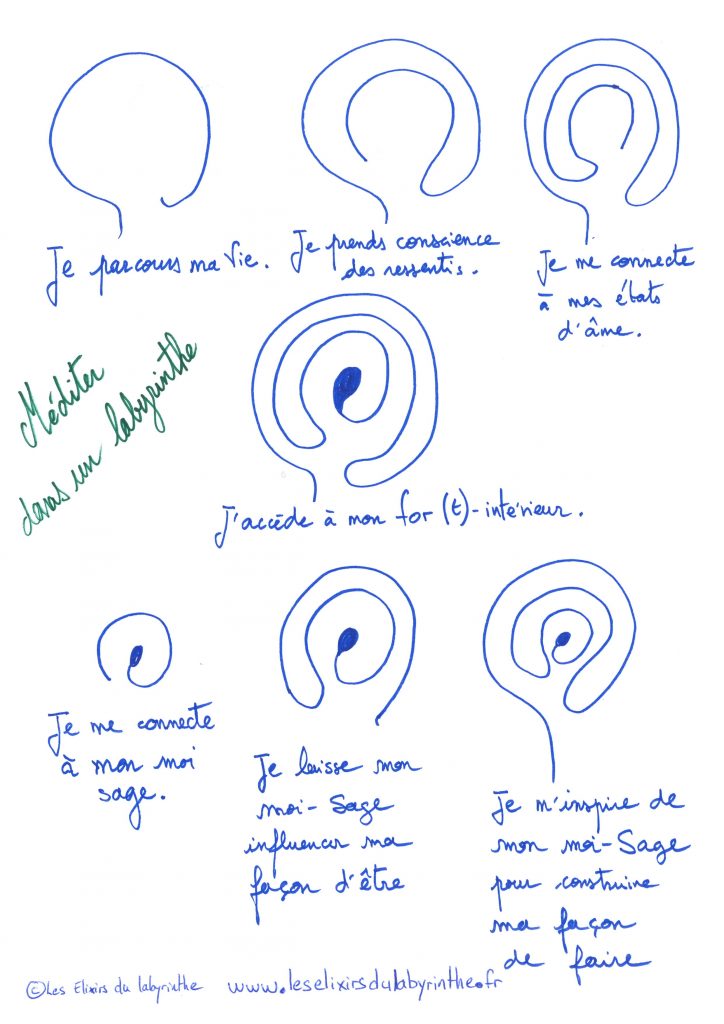 Je parcours ma Vie.
Je prends conscience
des ressentis.
Je me connecte
à mes états
d'âme.
Méditer
dans un labyrinthe
J'accède à mon for (t)-intérieur.
Je me connecte
à mon moi
sage.
Je laisse mon
moi-Sage
influencer ma
façon d'être
Je m'inspire de
mon moi-Sage
pour construire
ma façon
de faire
©Les Elixirs du labyrinthe www.leselixirsdulabyrinthe.fr